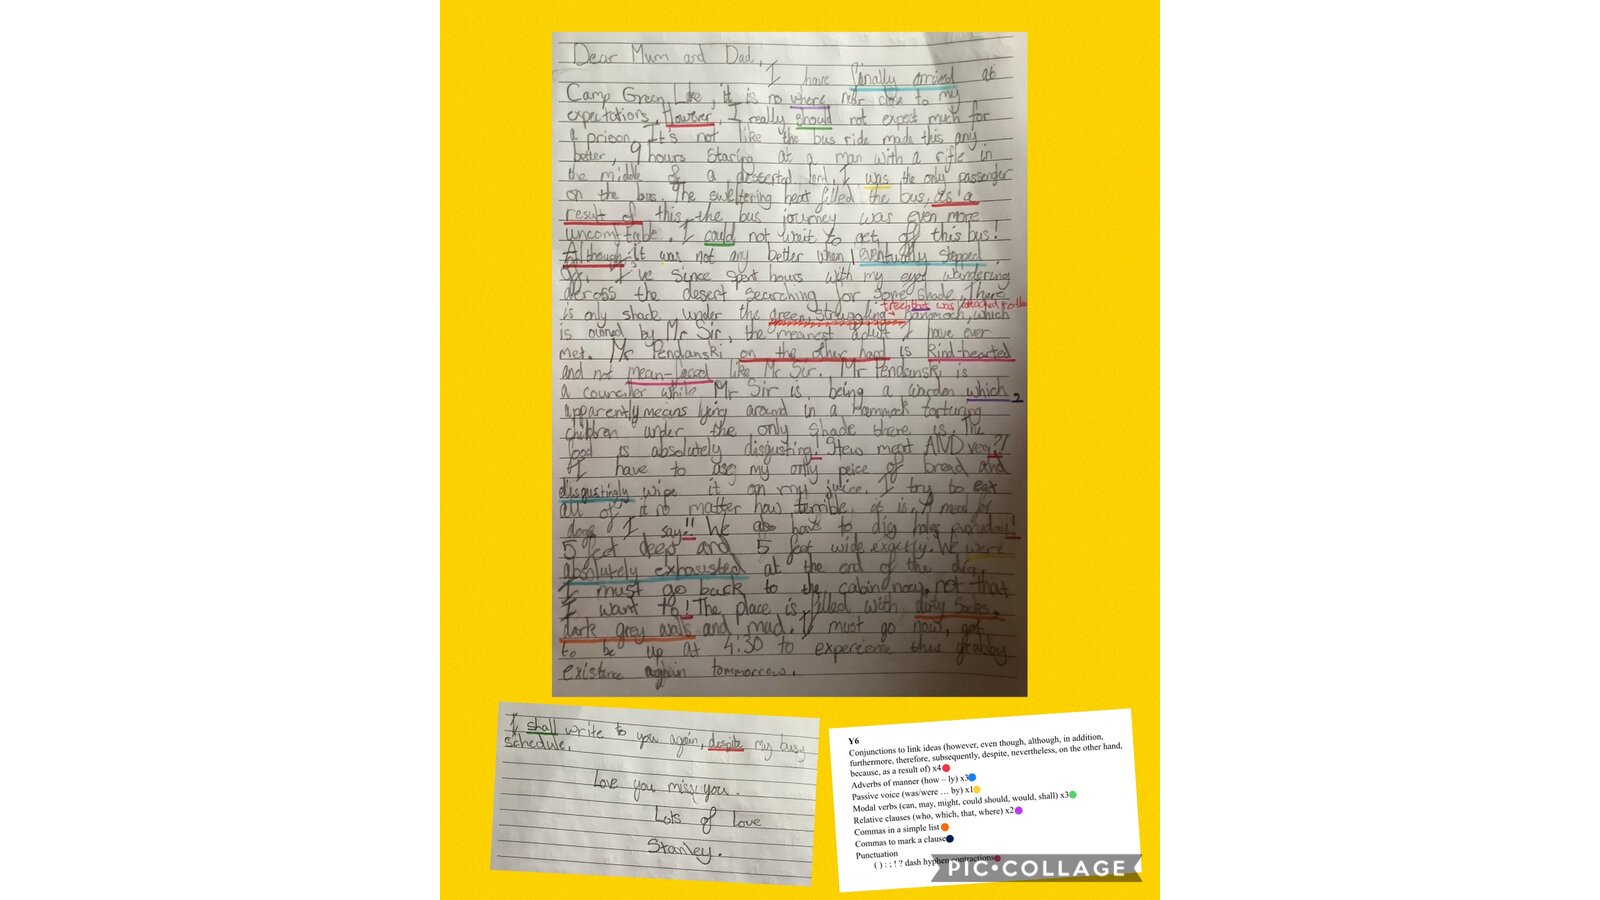 Dear Mum and Dad,
I have finally arrived at
Camp Green Lake, it is no where near close to my
expectations. However, I really should not expect much for
a prison. It's not like the bus ride made this any
better, 9 hours staring at a man with a rifle in
the middle of a desserted land. I was the only passenger
on the bus. The sweltering heat filled the bus, as a
result of this the bus journey was even more
uncomftable. I could not wait to get off this bus!
Although it was not any better when I eventually stepped
off, I've since spent hours with my eyes wandering
across the desert searching for some shade. There
tree that was attached to the
is only shade under the green, struggling hammock, which
is owned by Mr Sir, the meanest adult I have ever
met. Mr Pendanski on the other hand is kind-hearted
and not mean-faced like Mr Sir. Mr Pendanski is
a counciller while Mr Sir is being a warden which,
apparently means lying around in a Hammock torturing
children under the only shade there is. The
food is absolutely disgusting! Stew meat AND veg?!
I have to use my only peice of bread and
disgustingly wipe it on my juice. I try to eat
all of it no matter how terrible it is. A meal for
dogs I say!! We also have to dig holes everyday!
5 feet deep and 5 feet wide exactly. We were
absolutely exhausted at the end of the dig.
I must go back to the cabin now, not that
I want to! The place is filled with dirty socks,
dark grey walls and mud. I must go now, got
to be up at 4:30 to experiense this grabby
existence again tommorrow.
I shall write to you again, despite my busy
schedule.
Love you miss you.
Lots of love
Stanley.
Y6
Conjunctions to link ideas (however, even though, although, in addition,
furthermore, therefore, subsequently, despite, nevertheless, on the other hand,
because, as a result of) x4
Adverbs of manner (how – ly) x3
Passive voice (was/were … by) x1
Modal verbs (can, may, might, could should, would, shall) x3
Relative clauses (who, which, that, where) x2
Commas in a simple list
Commas to mark a clause
Punctuation
( ) : ; ! ? dash hyphen contractions
PIC•COLLAGE